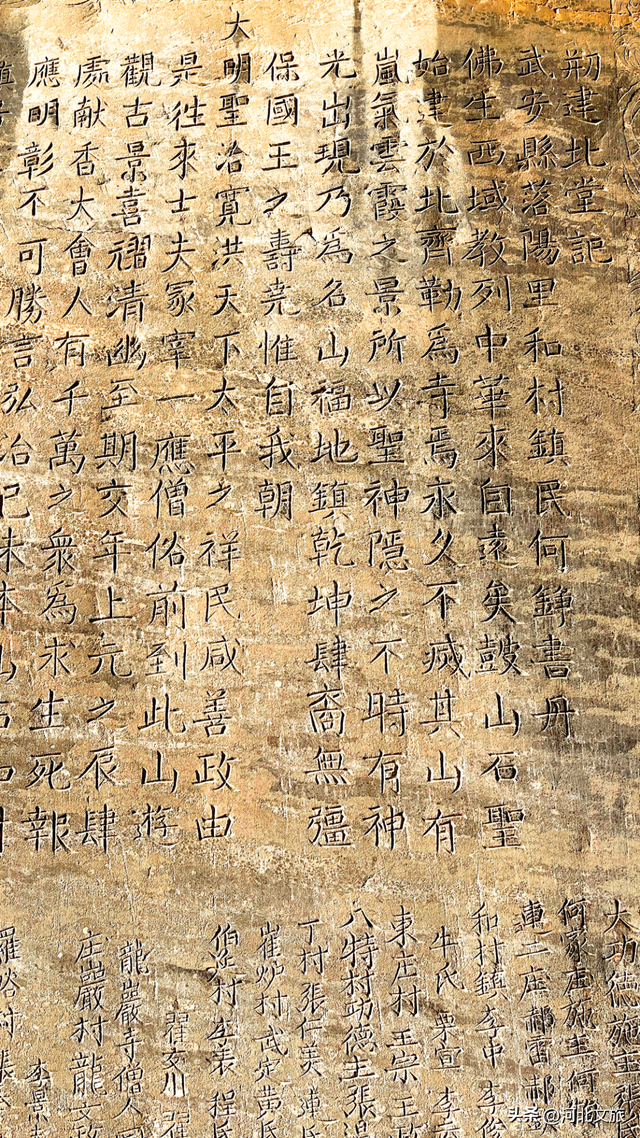 剏建北堂記
武安縣落陽里和村鎮民何錚書丹
佛生西域教列中華來自遠矣鼓山石聖
始建於北齊勒爲寺焉永久不滅其山有
嵐氣雲霞之景所以聖神隱之不時有神
光出現乃爲名山福地鎮乾坤肆裔無彊
保國王之壽堯惟自我朝
大明聖治寬洪天下太平之祥民咸善政由
是徃來士夫冢宰一應僧俗前到此山遊
觀古景喜禤清幽至期交年上元之辰肆
處献香大會人有千萬之衆爲求生死報
應明彰不可勝言弘治己未本山石
大功德施主
何家庄施主何
連二庄郝雷郝
和村鎮李中李
牛氏 栗宣 李
東庄村王宗王
八特村功德主張
丁村張仁美 連氏
崔炉村武 黄氏
伯 村 表 程氏
翟 川 翟
龍巖寺僧人
庄巖村龍
李景
羅峪村張
头条@河北文旅